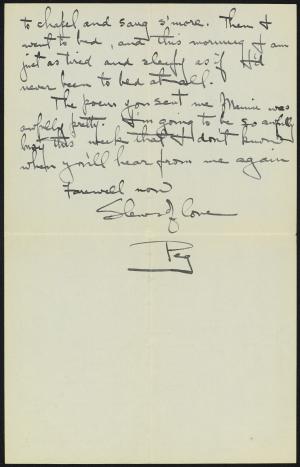 to chapel and sang s'more. Then I
went to bed, and this morning I am
just as tired and sleepy as if I'd
never been to bed at all.
The poem you sent me Mamie was
awfully pretty. I'm going to be so awfully
busy this week that I don't know
when you'll hear from me again
Farewell now
Slews of love
Peg